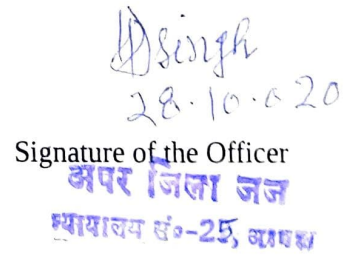 Singh
28.10.020
Signature of the Officer
अपर जिला जज
न्यायालय सं०-25, आगरा